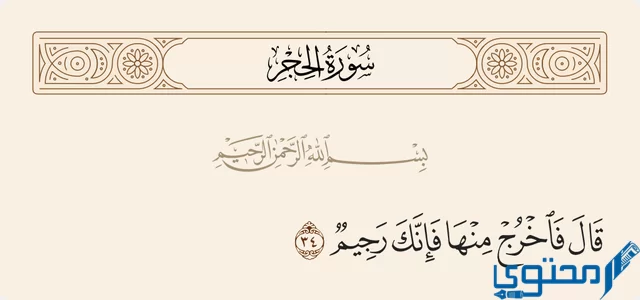 سُورَةُ الحِجْرِ
بِسْمِ ٱللَّهِ ٱلرَّحْمَٰنِ ٱلرَّحِيمِ
قَالَ فَٱخْرُجْ مِنْهَا فَإِنَّكَ رَجِيمٌ ٣٤
محتوى